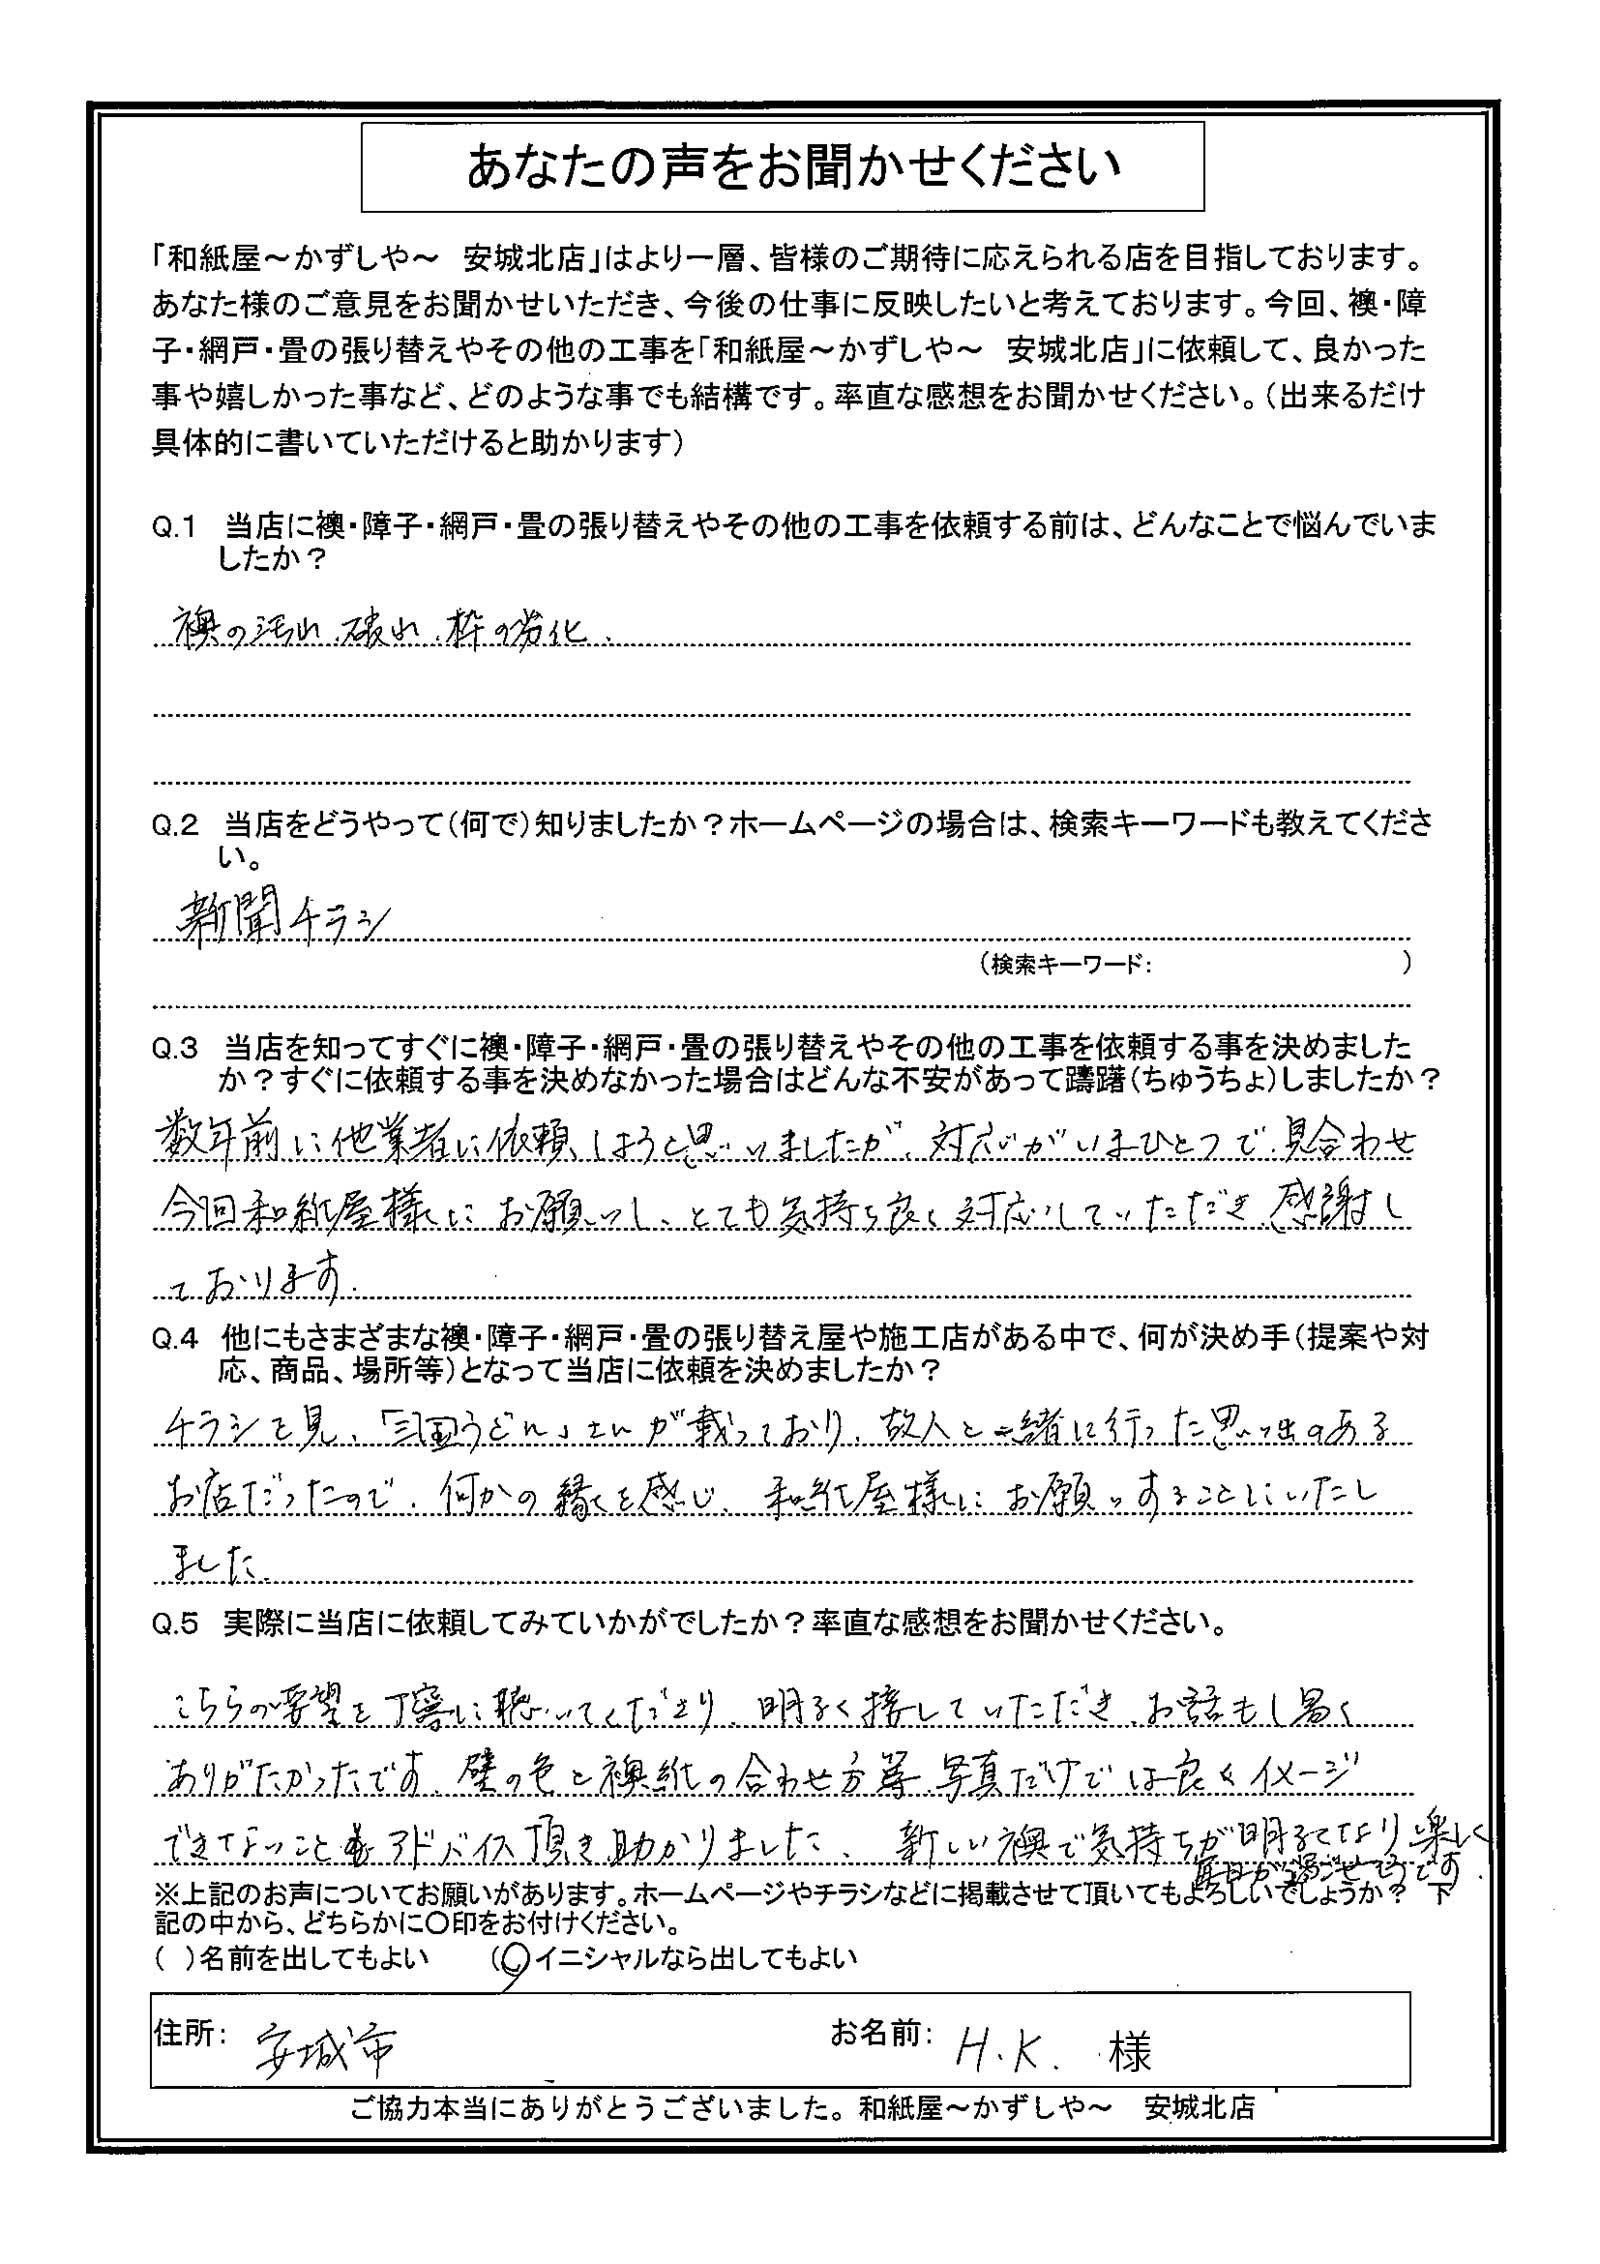 あなたの声をお聞かせください
「和紙屋～かずしや～　安城北店」はより一層、皆様のご期待に応えられる店を目指しております。
あなた様のご意見をお聞かせいただき、今後の仕事に反映したいと考えております。今回、襖・障
子・網戸・畳の張り替えやその他の工事を「和紙屋～かずしや～　安城北店」に依頼して、良かった
事や嬉しかった事など、どのような事でも結構です。率直な感想をお聞かせください。（出来るだけ
具体的に書いていただけると助かります）
Q.1　当店に襖・障子・網戸・畳の張り替えやその他の工事を依頼する前は、どんなことで悩んでいま
したか？
襖の汚れ、破れ、枠の劣化、
Q.2　当店をどうやって（何で）知りましたか？ホームページの場合は、検索キーワードも教えてくださ
い。
新聞チラシ
（検索キーワード：　　　　　　　　　　）
Q.3　当店を知ってすぐに襖・障子・網戸・畳の張り替えやその他の工事を依頼する事を決めました
か？すぐに依頼する事を決めなかった場合はどんな不安があって躊躇（ちゅうちょ）しましたか？
数年前に他業者に依頼しようと思いましたが、対応がいまひとつで、見合わせ
今回和紙屋様にお願いし、とても気持ち良く対応していただき、感謝し
ております。
Q.4　他にもさまざまな襖・障子・網戸・畳の張り替え屋や施工店がある中で、何が決め手（提案や対
応、商品、場所等）となって当店に依頼を決めましたか？
チラシを見、「三国うどん」さんが載っており、故人と一緒に行った思い出のある
お店だったので、何かの縁を感じ、和紙屋様にお願いすることにいたし
ました。
Q.5　実際に当店に依頼してみていかがでしたか？率直な感想をお聞かせください。
こちらの要望を丁寧に聴いてくださり、明るく接していただき、お話もし易く
ありがたかったです。壁の色と襖紙の合わせ方等、写真だけでは良くイメージ
できないこともアドバイス頂き助かりました。新しい襖で気持ちが明るくなり楽しく
毎日が過ごせそうです。
※上記のお声についてお願いがあります。ホームページやチラシなどに掲載させて頂いてもよろしいでしょうか？　下
記の中から、どちらかに〇印をお付けください。
（　）名前を出してもよい　　（〇）イニシャルなら出してもよい
住所：　安城市　　お名前：　H.K.　様
ご協力本当にありがとうございました。和紙屋～かずしや～　安城北店